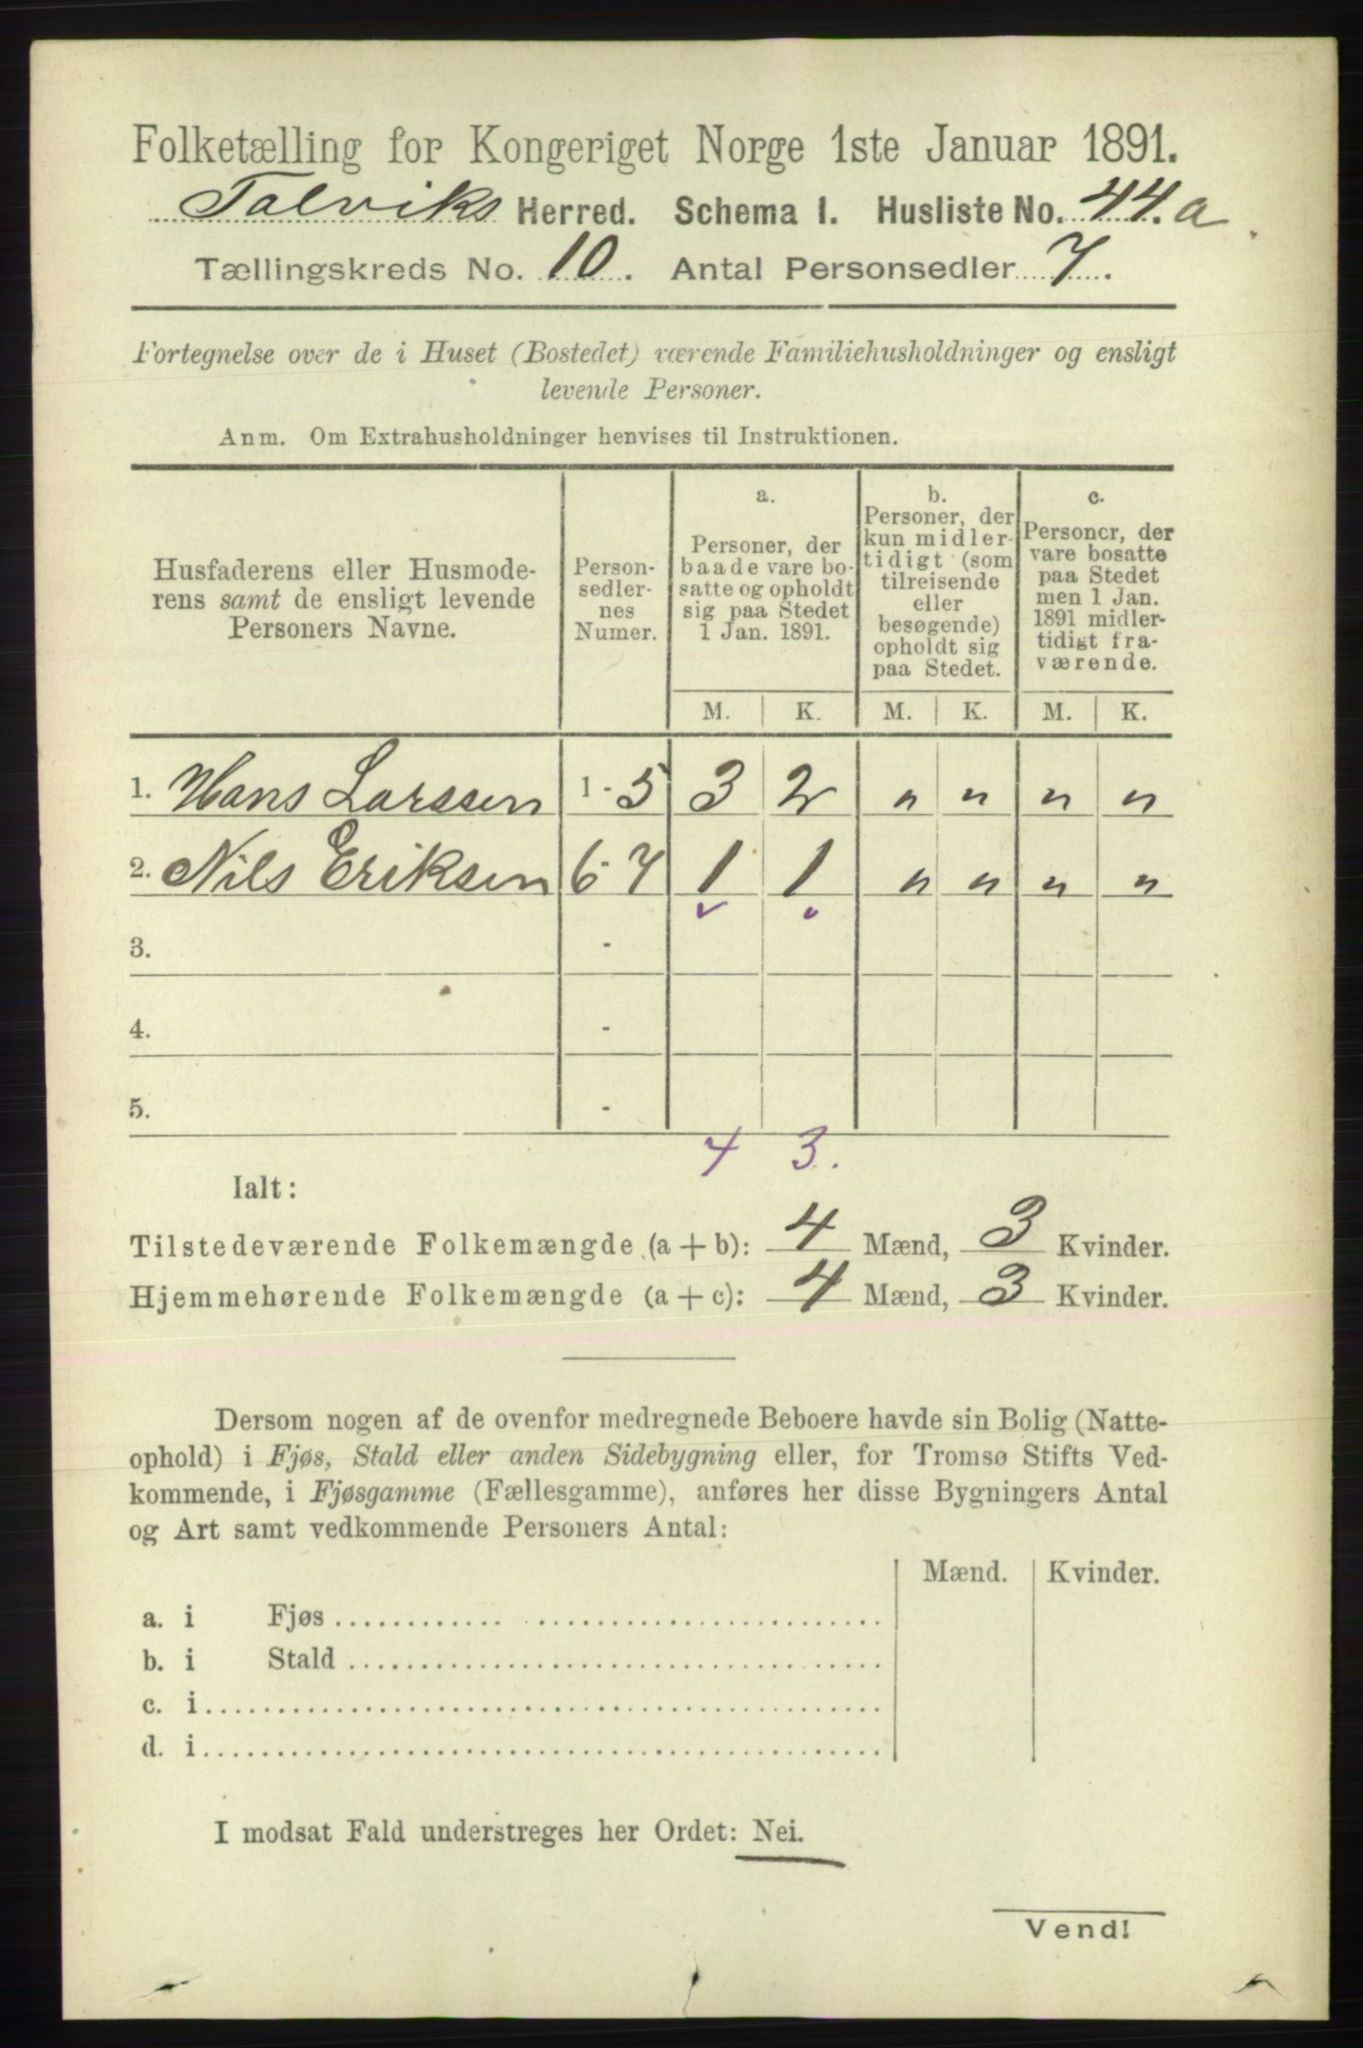 Folketælling for Kongeriget Norge 1ste Januar 1891.
Talviks Herred. Schema I. Husliste No. 44.a
Tællingskreds No. 10. Antal Personsedler 7.
Fortegnelse over de i Huset (Bostedet) værende Familiehusholdninger og ensligt
levende Personer.
Anm. Om Extrahusholdninger henvises til Instruktionen.
Husfaderens eller Husmode-
rens samt de ensligt levende
Personers Navne.
Person-
sedler-
nes
Numer.
a.
Personer, der
baade vare bo-
satte og opholdt
sig paa Stedet
1 Jan. 1891.
b.
Personer, der
kun midler-
tidigt (som
tilreisende
eller
besøgende)
opholdt sig
paa Stedet.
c.
Personer, der
vare bosatte
paa Stedet
men 1 Jan.
1891 midler-
tidigt fra-
værende.
M. K. M. K. M. K.
1. Hans Larssen 1-5 3 2 " " " "
2. Nils Eriksen 6-7 1 1 " " " "
3. -
4. -
5. -
4 3.
Ialt:
Tilstedeværende Folkemængde (a + b): 4 Mænd, 3 Kvinder.
Hjemmehørende Folkemængde (a + c): 4 Mænd, 3 Kvinder.
Dersom nogen af de ovenfor medregnede Beboere havde sin Bolig (Natte-
ophold) i Fjøs, Stald eller anden Sidebygning eller, for Tromsø Stifts Ved-
kommende, i Fjøsgamme (Fællesgamme), anføres her disse Bygningers Antal
og Art samt vedkommende Personers Antal:
Mænd. Kvinder.
a. i Fjøs
b. i Stald
c. i
d. i
I modsat Fald understreges her Ordet: Nei.
Vend!